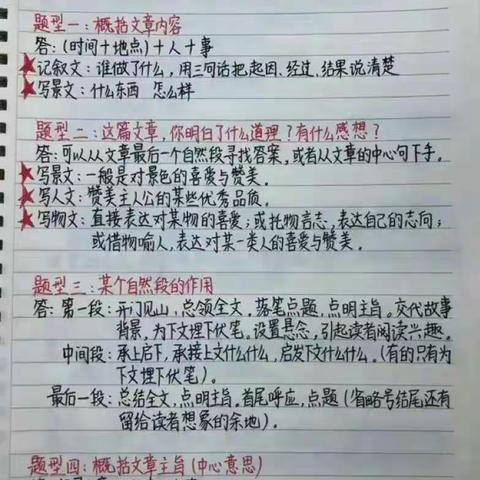 题型一：概括文章内容
答：(时间+地点)+人+事
★记叙文：谁做了什么，用三句话把起因、经过、结果说清楚
★写景文：什么东西 怎么样
题型二：这篇文章，你明白了什么道理？有什么感想？
答：可以从从文章最后一个自然段寻找答案，或者从文章的中心句下手。
★写景文：一般是对景色的喜爱与赞美。
★写人文：赞美主人公的某些优秀品质。
★写物文：直接表达对某物的喜爱；或托物言志，表达自己的志向；
或借物喻人，表达对某一类人的喜爱与赞美。
题型三：某个自然段的作用
答：第一段：开门见山，总领全文。落笔点题，点明主旨。交代故事
背景，为下文埋下伏笔。设置悬念，引起读者阅读兴趣。
中间段：承上启下，承接上文什么什么，启发下文什么什么。(有的只有为
下文埋下伏笔)。
最后一段：总结全文，点明主旨。首尾呼应，点题(省略号结尾还有
留给读者想象的余地)。
题型四：概括文章主旨(中心意思)